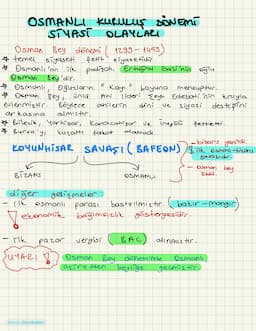 OSMANLI KURULUŞ DÖNEMİ
SİYASİ OLAYLARI
Osman Bey dönemi (1299 - 1453)
* temel siyaseti fetih siyasetidir.
* Osmanlı'nın ilk padişah Ertuğrul Gazi'nin oğlu
Osman Bey'dir.
* Osmanlı, Oğuzların "Kayı" boyuna mensuptur.
* Osman Bey, ünlü Ahi lideri Şeyh Edebali'nin kızıyla
evlenmiştir. Böylece ahilerin dini ve siyasi desteğini
arkasına almıştır.
* Bilecik, Yarhisar, Karacahisar ve İnegöl fethetti.
* Bursa'yı kuşattı fakat alamadı.
KOYUNHİSAR SAVAŞI (BAFEON)
BİZANS
OSMANLI
- bizans yenildi
ilk osmanlı-bizans
savaşıdır
- Osman bey
diğer gelişmeler
- ilk osmanlı parası bastırılmıştır. (bakır-mangır)
! ekonomik bağımsızlık göstergesidir.
- ilk pazar vergisi BAC alınmıştır.
UYARI ! Osman Bey döneminde Osmanlı
aşiretten beyliğe geçmiştir.